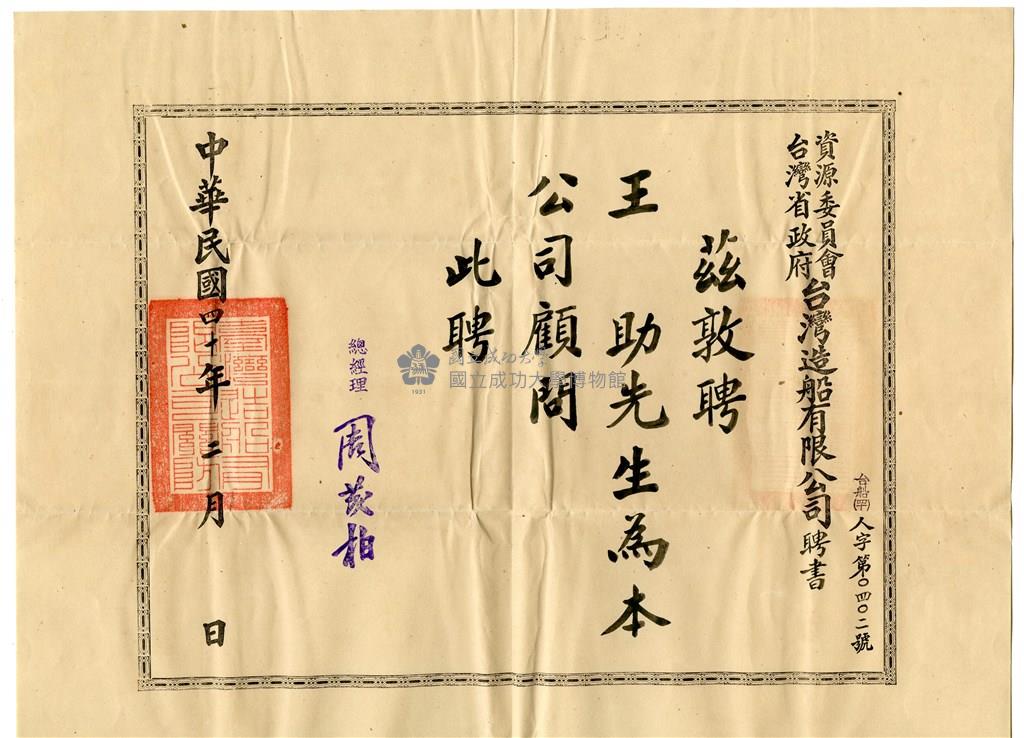 資源委員會
台灣省政府
台灣造船有限公司聘書
台船(罕)人字第〇四〇二號
茲敦聘
王助先生為本
公司顧問
此聘
總經理 周茂柏
中華民國四十年二月 日
國立成功大學
國立成功大學博物館
1931